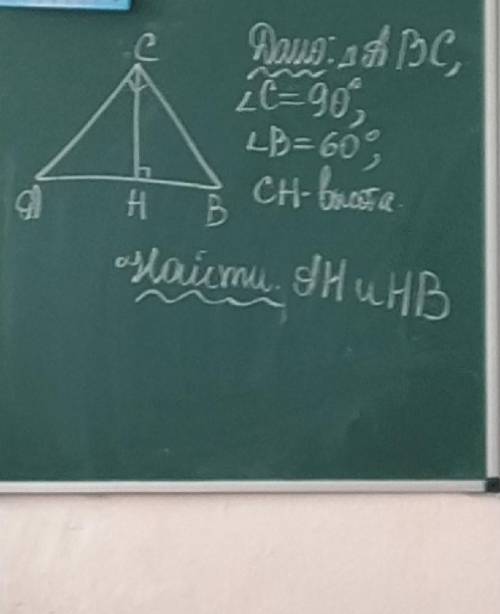 C
A H B
Дано: △ABC,
∠C=90°,
∠B=60°,
CH-высота.
Найти. AH и HB